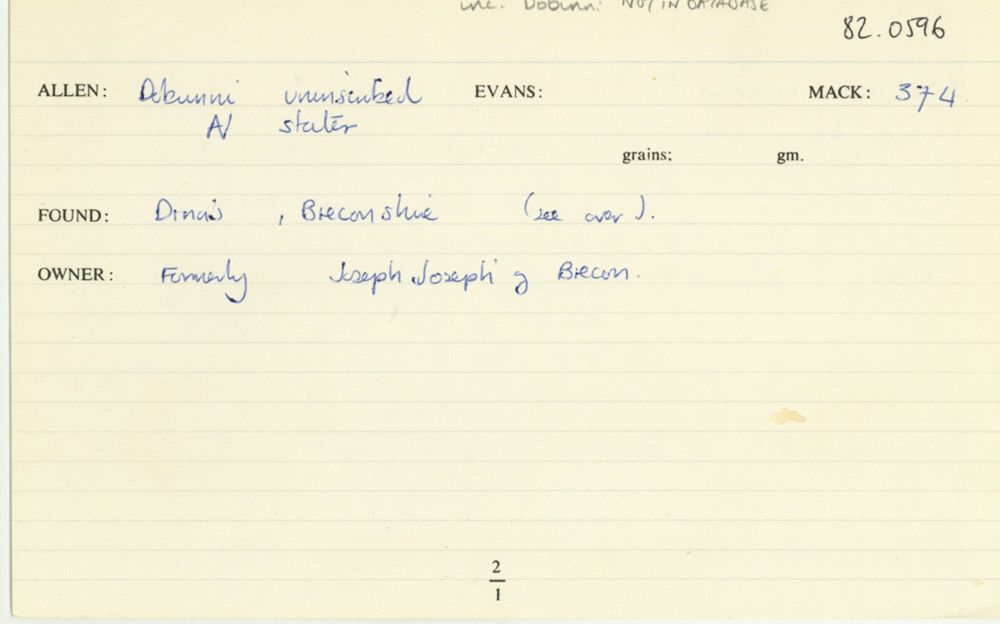 inc. Dobunni NOT IN DATABASE
82.0596
ALLEN: Dobunni uninscribed EVANS: MACK: 374
A/ stater
grains: gm.
FOUND: Dinas , Breconshire (see over).
OWNER: Formerly Joseph Joseph of Brecon.
2
1